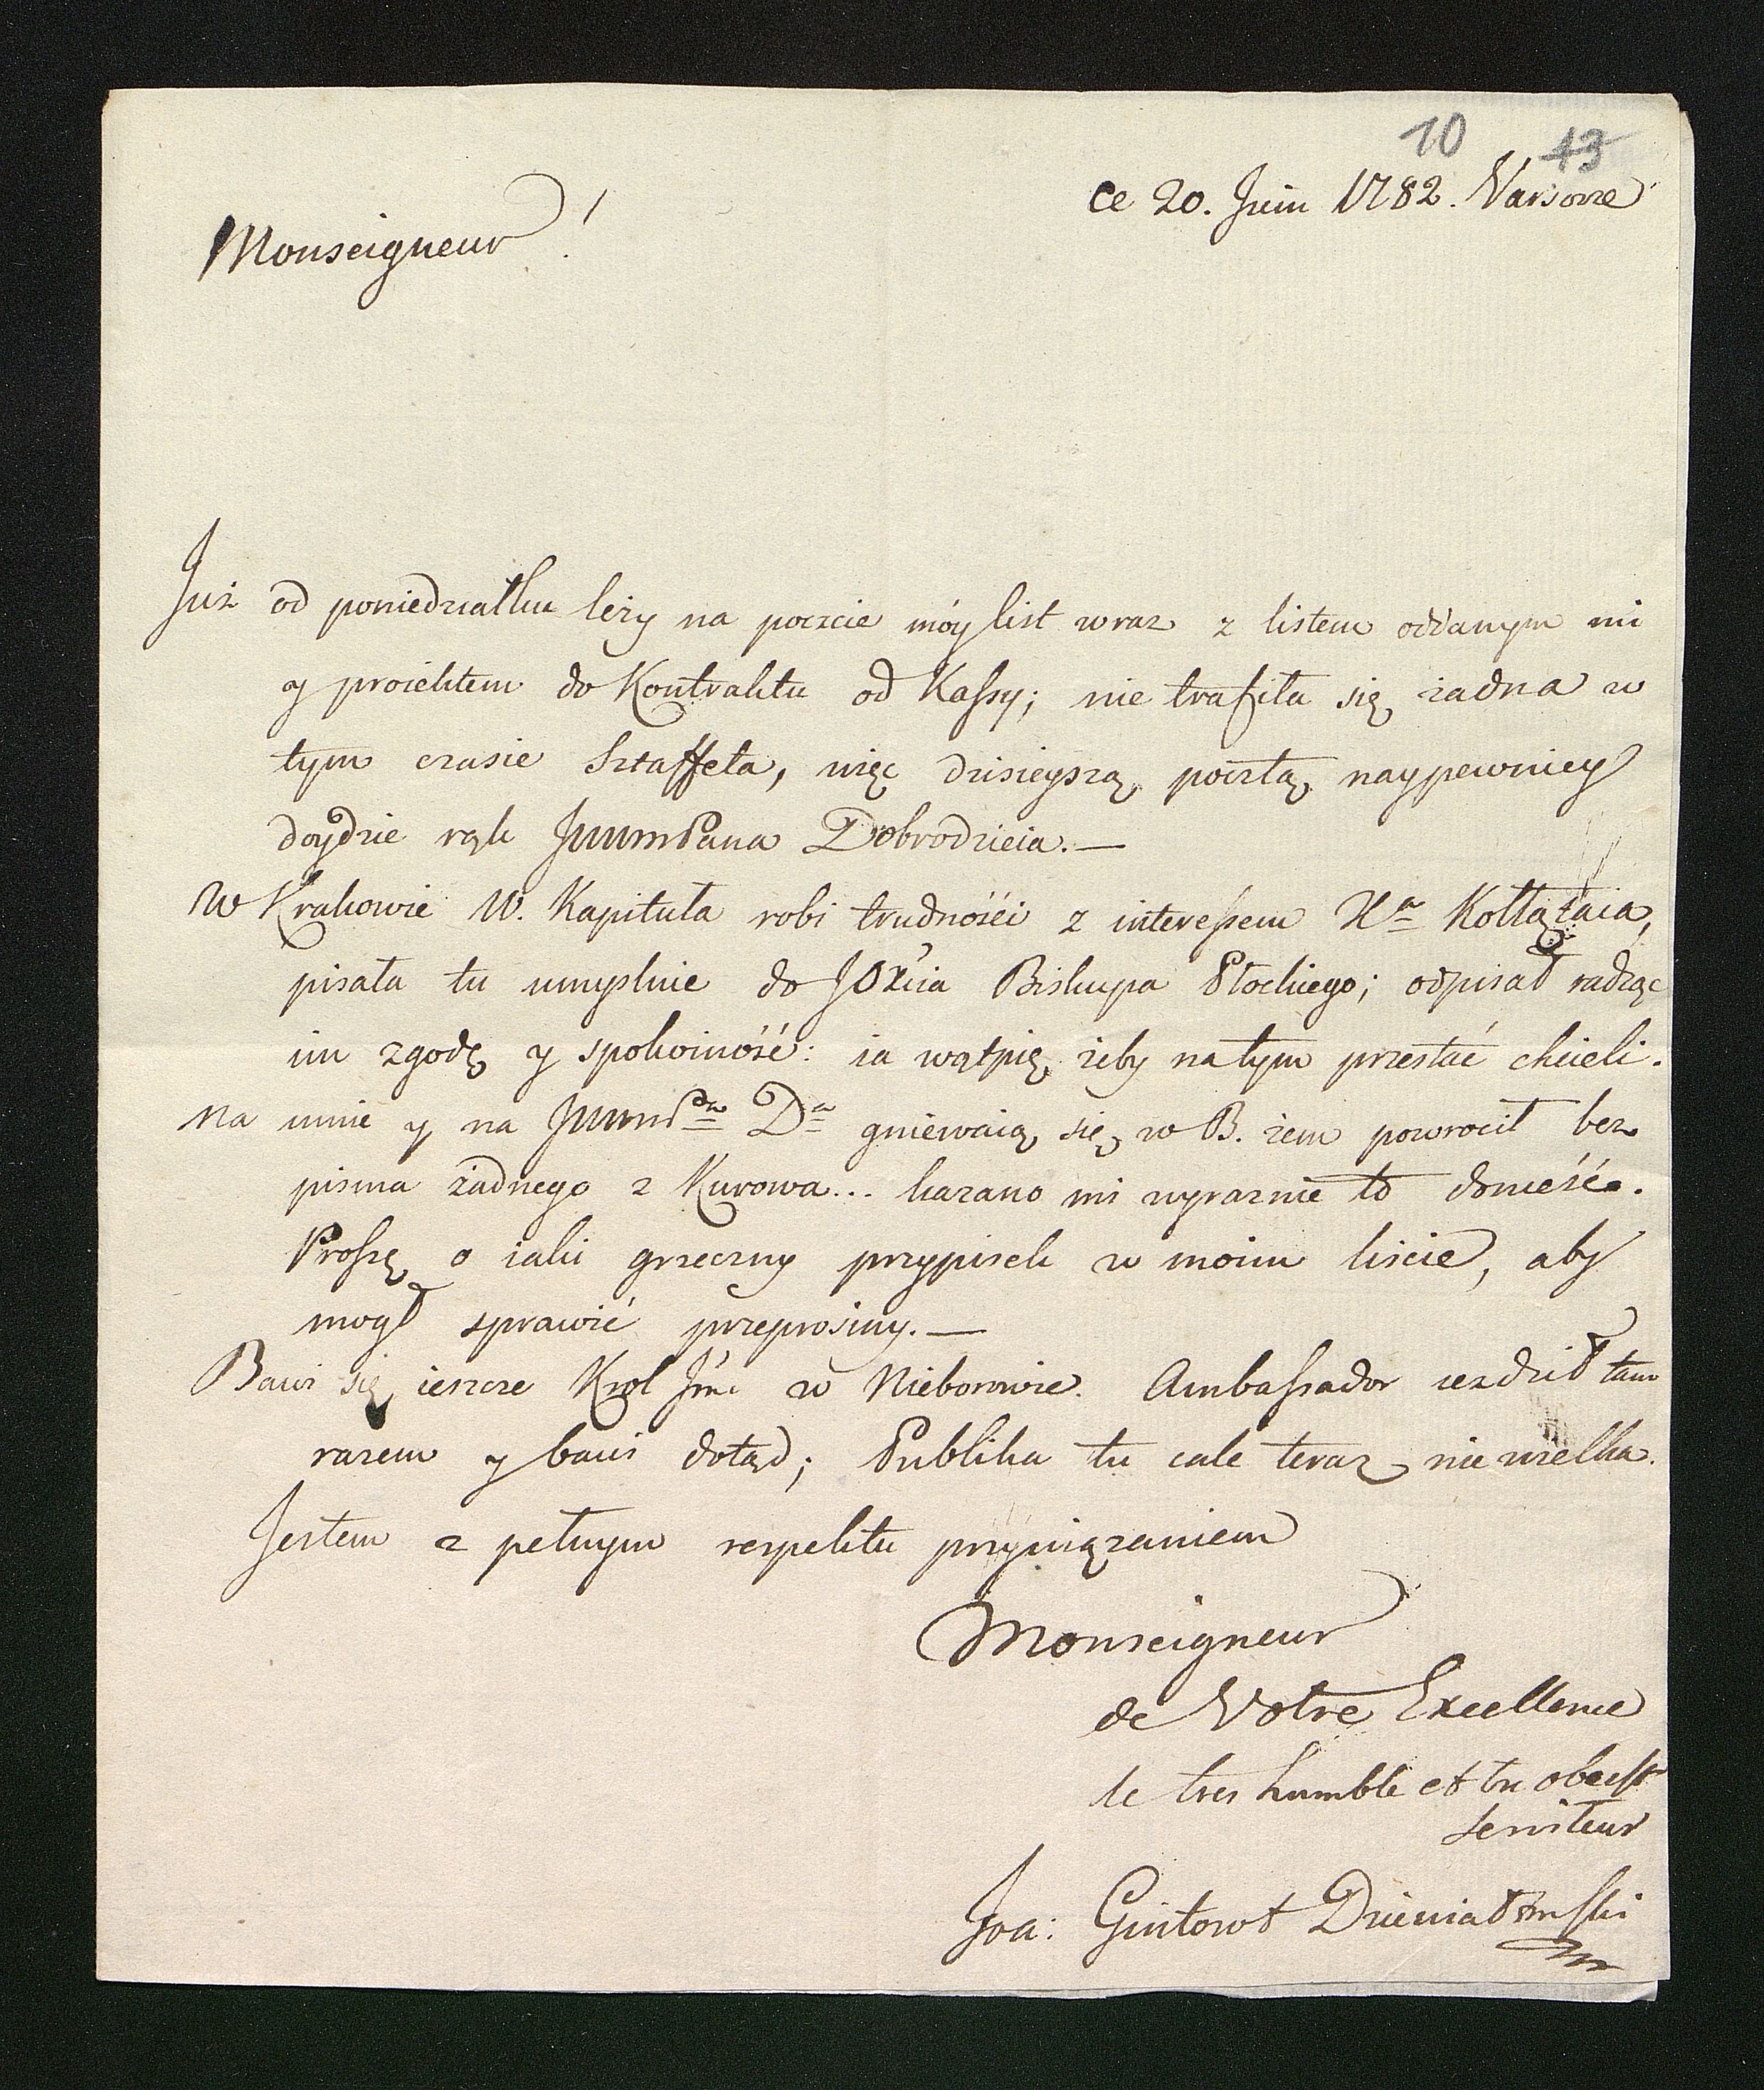 10 13
ce 20. Juin 1782. Varsovie
Monseigneur!
Juz od poniedziałku leży na poczcie móy list wraz z listem oddanym mi
y proiektem do Kontraktu od Kassy; nie trafiła się żadna w
tym czasie Sztaffeta, więc dzisieyszą pocztą naypewniey
doydzie rąk JWWmPana Dobrodzieia.—
W Krakowie W. Kapituła robi trudności z interessem Xa Kołłątaia,
pisała tu umyslnie do JOXcia Biskupa Płockiego; odpisał radząc
im zgodę y spokoiność: ia wątpię żeby na tym przestać chcieli.
Na mnie y na JWWmPa Da gniewaią się w B. żem powrocił bez
pisma żadnego z Kurowa... kazano mi wyraznie to donieść.
Proszę o iaki grzeczny przypisek w moim liscie, aby
mogł sprawić przeprosiny.—
Bawi się ieszcze Krol Jmć w Nieborowie. Ambassador iezdził tam
razem y bawi dotąd; Publika tu cale teraz nie wielka.
Jestem z pełnym respektu przywiązaniem
Monseigneur
de Votre Excellence
le tres humble et tr obeisst
serviteur
Joa: Gintowt Dziewiałtowski